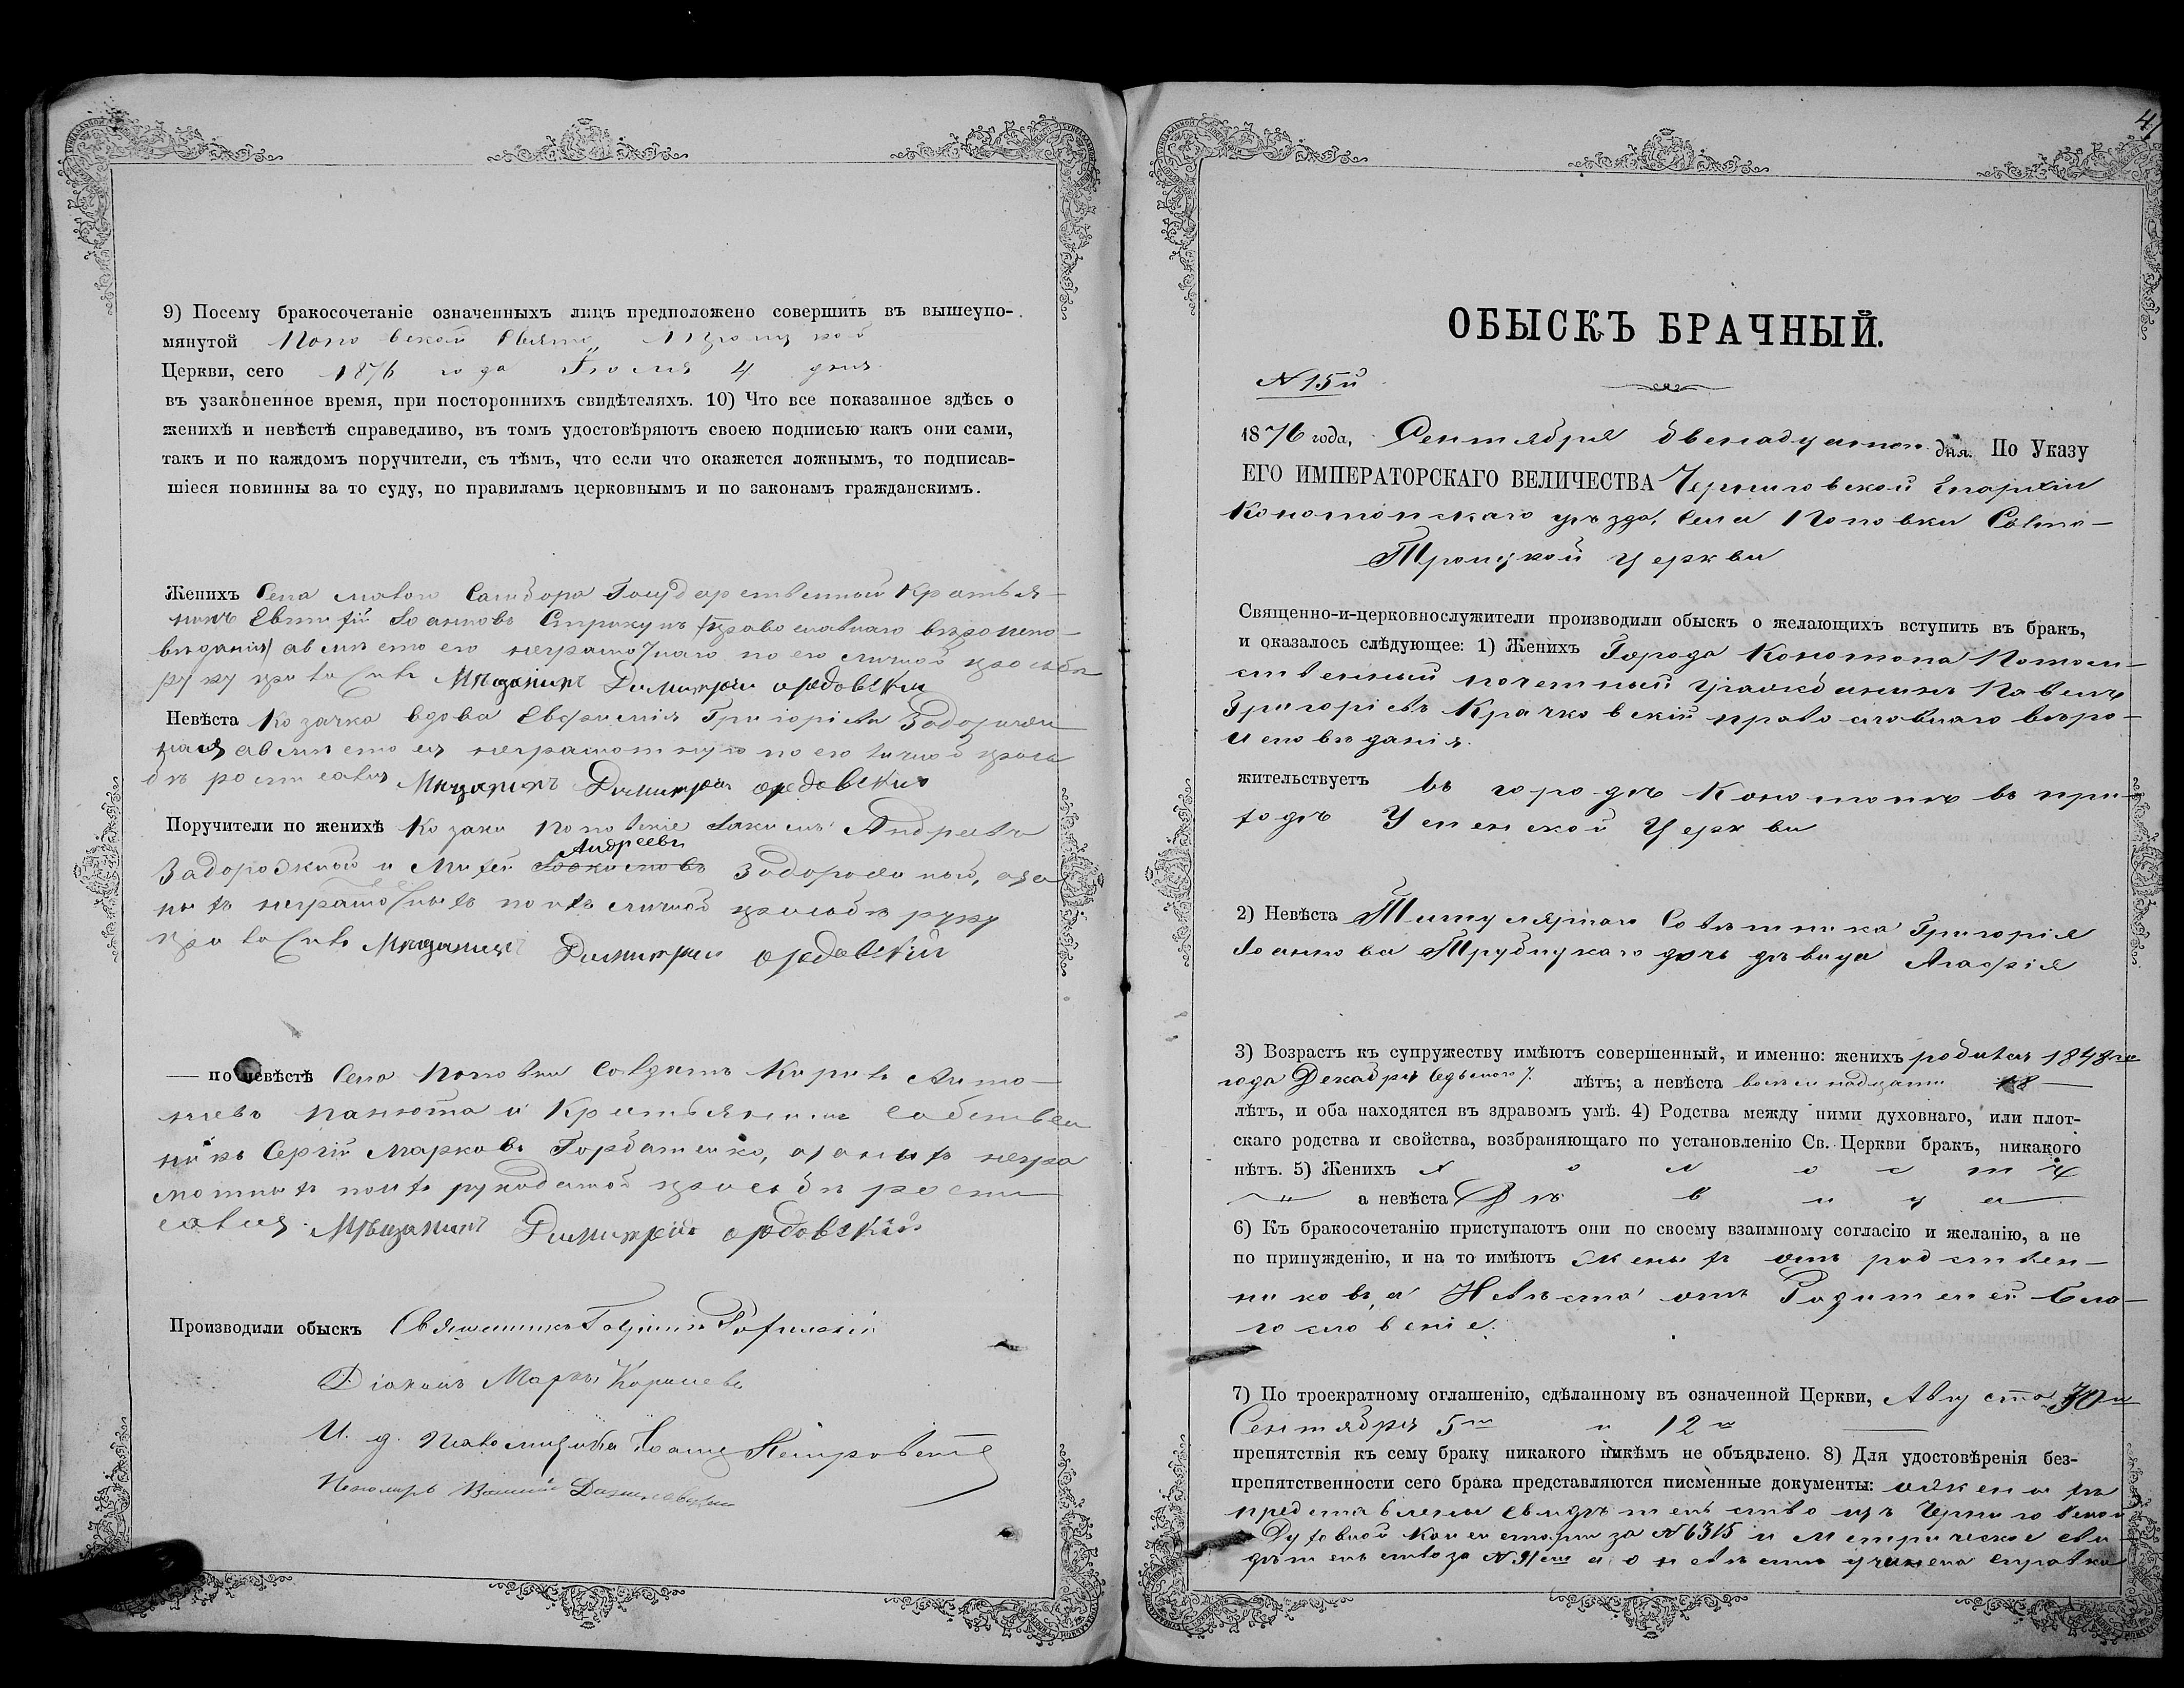 9) Посему бракосочетаніе означенныхъ лицъ предположено совершить въ вышеупо-
мянутой Поповской Свято Троицкой
Церкви, сего 1876 года Іюля 4 дня
въ узаконенное время, при постороннихъ свидѣтеляхъ. 10) Что все показанное здѣсь о
женихѣ и невѣстѣ справедливо, въ томъ удостовѣряютъ своею подписью какъ они сами,
такъ и по каждомъ поручители, съ тѣмъ, что если что окажется ложнымъ, то подписав-
шіеся повинны за то суду, по правиламъ церковнымъ и по законамъ гражданскимъ.
Женихъ Села Малого Самбора Государственный Крестья-
нинъ Евтифій Іоанновъ Стрикунъ православнаго вѣроиспо-
вѣданія, а вмѣсто его неграмотнаго по его личной прозьбѣ
руку Мѣщанинъ Димитрій
Невѣста Козачка вдова Евфимія Григоріева Задорож-
ная а вмѣсто ея неграмотную по его личной прозь
бѣ росписався Мѣщанинъ Димитрій
Поручители по женихѣ Козаки Поповскіе Іакимъ Андреевъ
Андреевъ
Задорожный и Мифей Задорожный, а за
нихъ неграмотныхъ по ихъ личной прозьбѣ руку
Мѣщанинъ Димитрій
— по невѣстѣ Села Поповки Солдатъ Антo-
новъ и Крестьянинъ Собствен
никъ Сергій Марковъ Горбатенко, а за нихъ негра
мотныхъ по ихъ рукодатной прозьбѣ роспи
сався Мѣщанинъ Димитрій
Производили обыскъ Священникъ
Діаконъ Маркъ Корнiевъ
И. д. Псаломщика Іоаннъ Петровскій
Пономарь Василій
№ 15й
ОБЫСКЪ БРАЧНЫЙ.
1876 года, Сентября двенадцатого дня. По Указу
ЕГО ИМПЕРАТОРСКАГО ВЕЛИЧЕСТВА Черниговской Епархіи
Конотопскаго уѣзда, Села Поповки Свято-
Троицкой Церкви
Священно-и-церковнослужители производили обыскъ о желающихъ вступить въ бракъ,
и оказалось слѣдующее: 1) Женихъ Города Конотопа Потом-
ственный почетный Гражданинъ Павелъ
Григоріевъ Крачковскій православнаго вѣро-
исповѣданія.
жительствуетъ въ городѣ Конотопѣ въ при-
ходѣ Успенской Церкви
2) Невѣста Титулярнаго Совѣтника Григорія
Іоаннова Трубицкаго дочь дѣвица Агафія
3) Возрастъ къ супружеству имѣютъ совершенный, и именно: женихъ родился 1848го
года Декабря Седьмого 7. лѣтъ; а невѣста восемнадцати 18 —
лѣтъ, и оба находятся въ здравомъ умѣ. 4) Родства между ними духовнаго, или плот-
скаго родства и свойства, возбраняющаго по установленію Св. Церкви бракъ, никакого
нѣтъ. 5) Женихъ Холостъ
а невѣста Дѣвица
6) Къ бракосочетанію приступаютъ они по своему взаимному согласію и желанію, а не
по принужденію, и на то имѣютъ Женихъ отъ родствен-
никовъ, а Невѣста отъ Родителей Бла-
гословеніе.
7) По троекратному оглашенію, сдѣланному въ означенной Церкви, Августа 30
Сентября 5го и 12го
препятствія къ сему браку никакого никѣмъ не объявлено. 8) Для удостовѣренія без-
препятственности сего брака представляются писменные документы: о Женихѣ
представлены Свидѣтельство изъ Черниговской
Духовной Консисторіи за № 6315 и Метрическое сви-
дѣтельство за № 91 а о невѣсте учинена справка